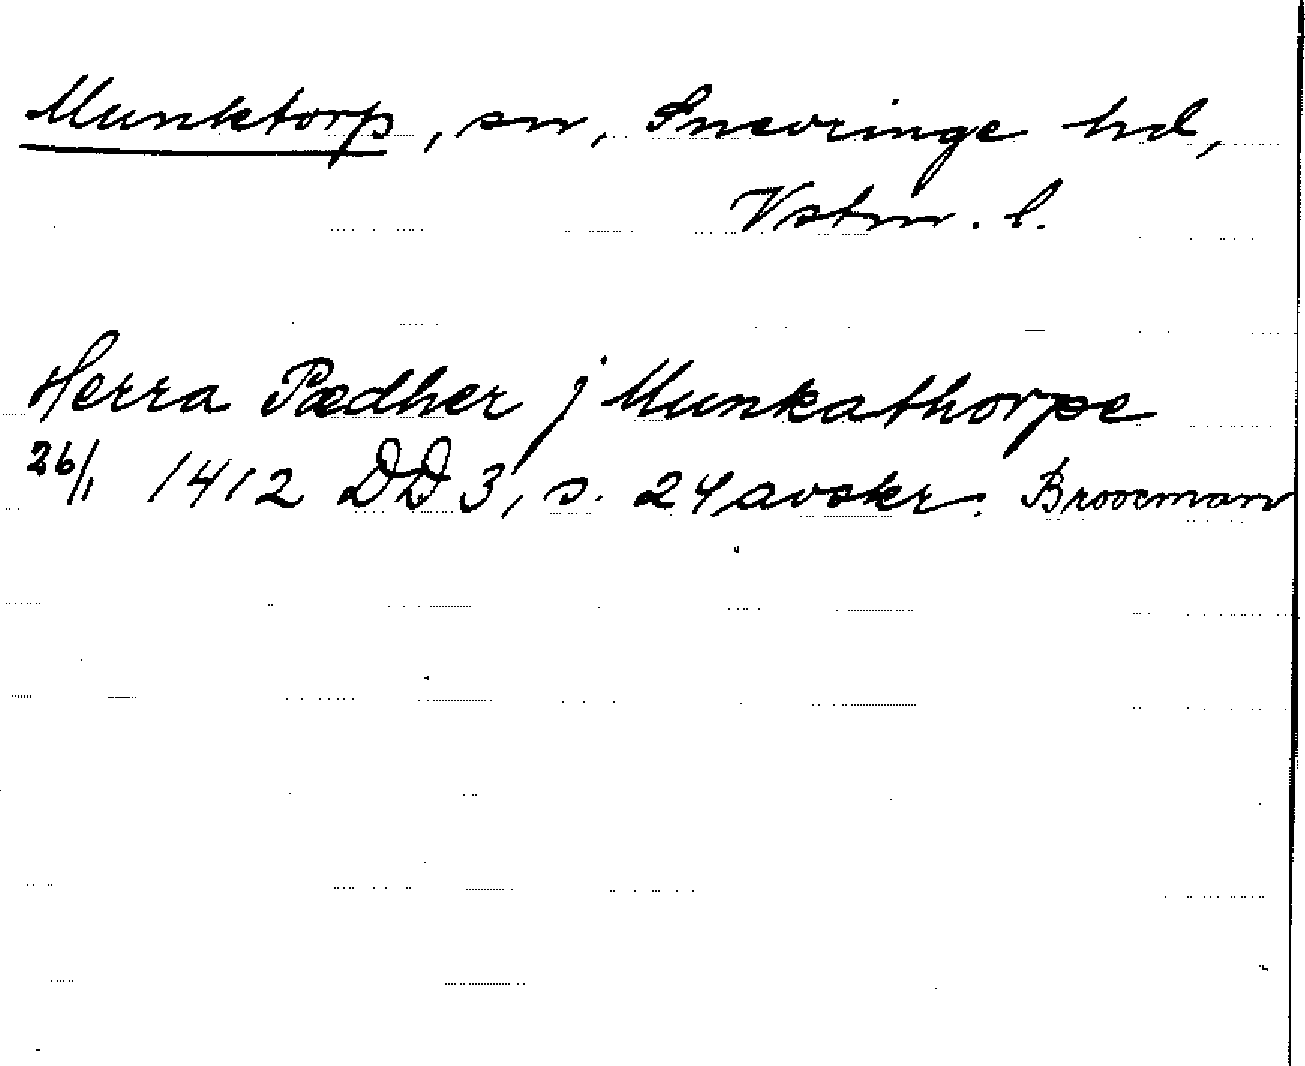 Munktorp, sn, Snevringe hd,
Vstm. l.
Herra Pædher j Munkathorpe
26/1 1412 DD 3, s. 24 avskr. Broocman